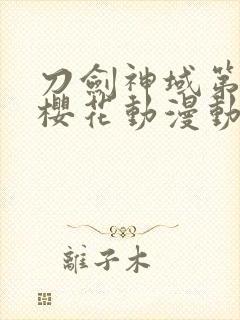 刀劍神域第
櫻花動漫動
離子木